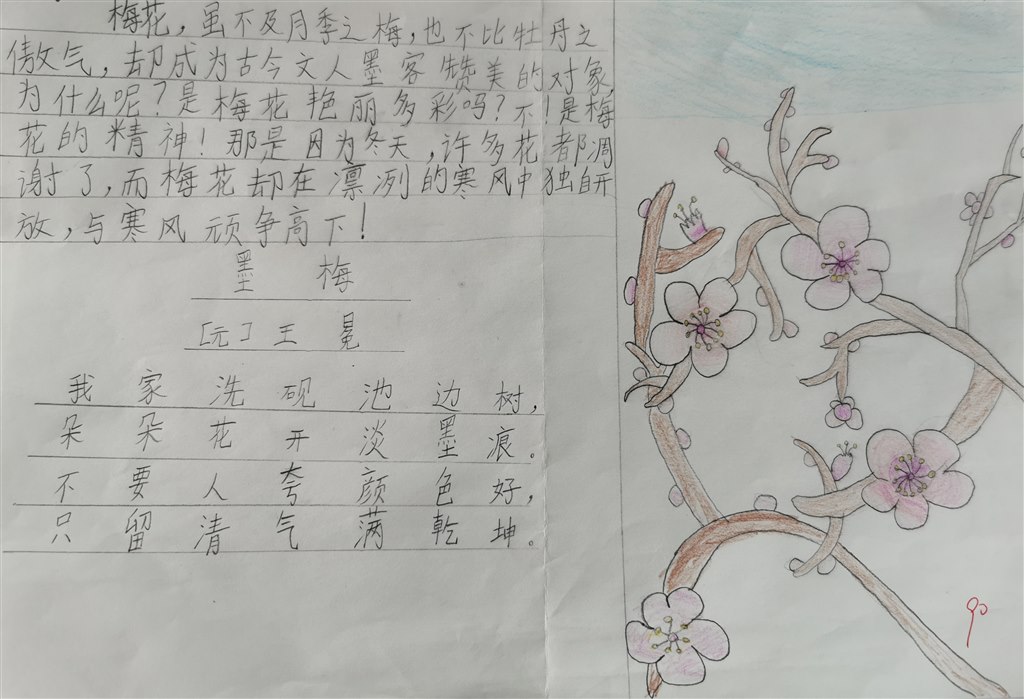 梅花，虽不及月季之梅，也不比牡丹之
傲气，却成为古今文人墨客赞美的对象，
为什么呢？是梅花艳丽多彩吗？不！是梅
花的精神！那是因为冬天，许多花都凋
谢了，而梅花却在凛冽的寒风中独自开
放，与寒风顽争高下！
墨梅
［元］王冕
我家洗砚池边树，
朵朵花开淡墨痕。
不要人夸颜色好，
只留清气满乾坤。
90